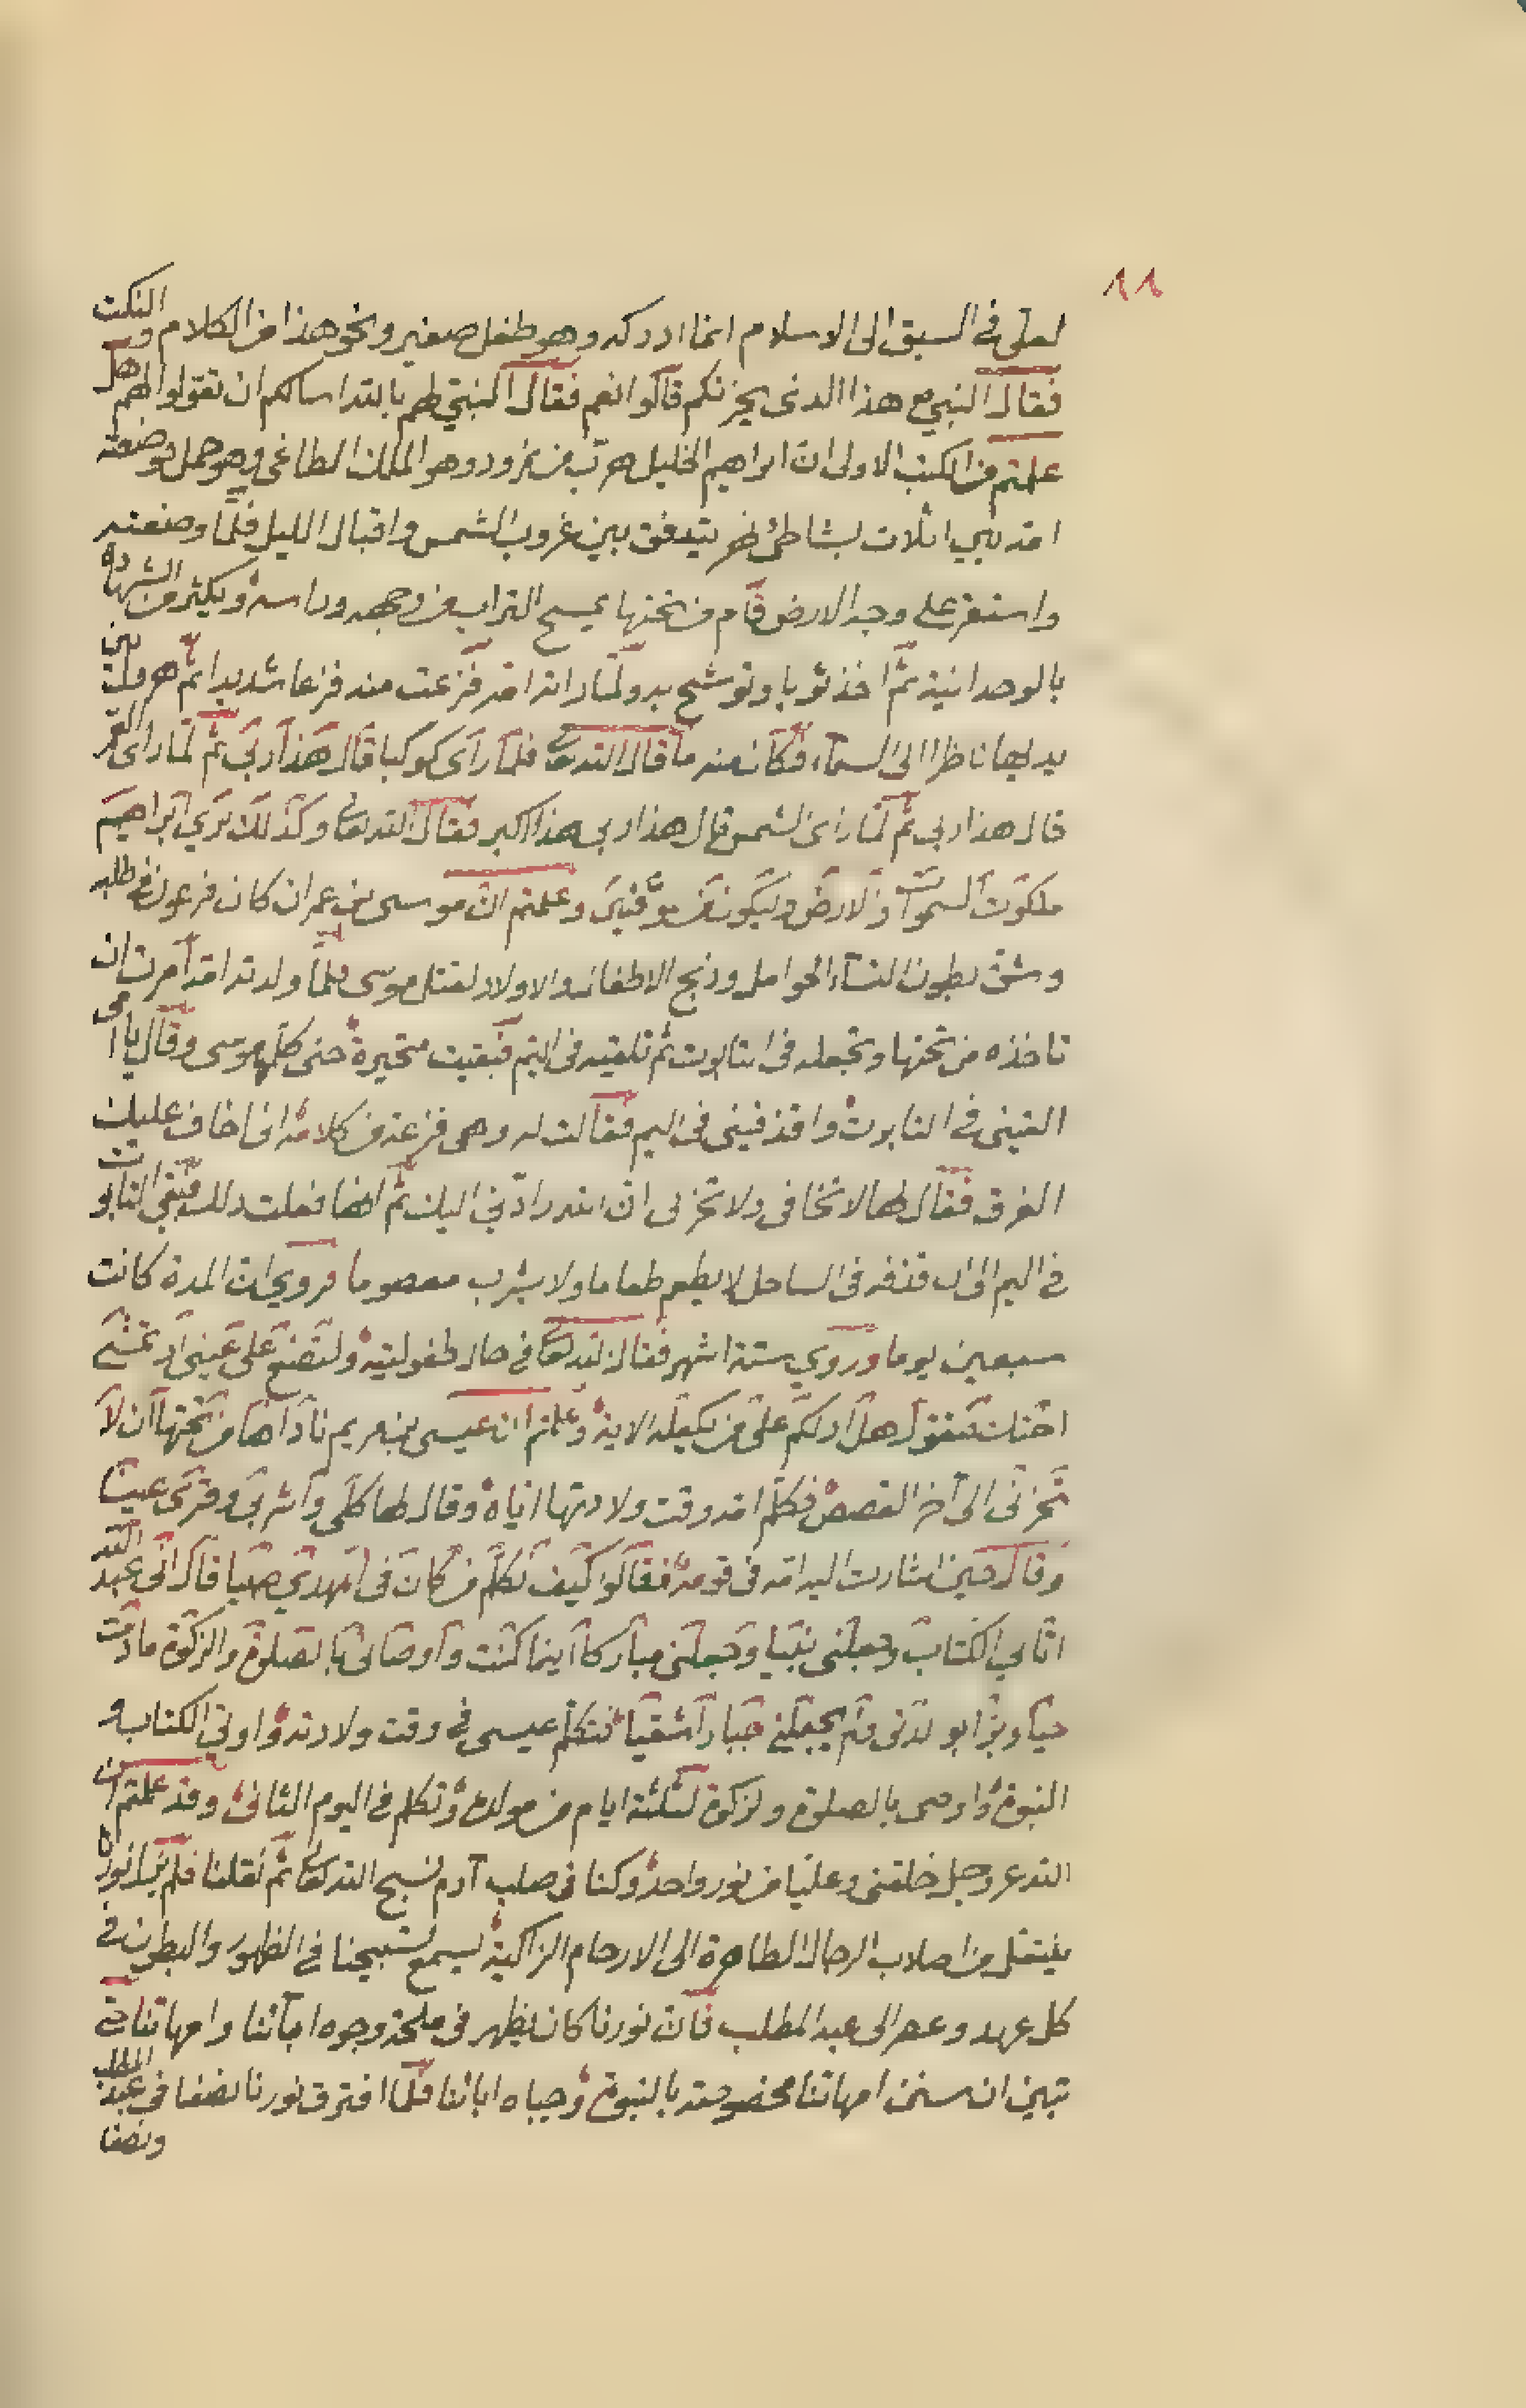 ١١
لعلي في السبق الى الاسلام انما ادركه وهو طفل صغير ونحو هذا من الكلام و النكت
فقال النبي ع هذا الذى يحزنكم قالوا نعم فقال النبي لهم بالله اسالكم ان تقولوا لهم هل
علمتم من الكتب الاولى ان ابراهيم الخليل هرب من نمرود وهو الملك الطاغي وهو حمل فوضعته
امه بين اثلاث بشاطئ نهر يتدفق بين غروب الشمس واقبال الليل فلما وضعته
واستقر على وجه الارض قام من تحتها يمسح التراب من وجهه وراسه ويكثر من الشهادة
بالوحدانية ثم اخذ ثوبا وتوشح به ولما راته امه فزعت منه فزعا شديدا ثم هرول بين
يديها ناظرا الى السماء فكان منه ما قال الله تعا فلما رآى كوكبا قال هذا ربي ثم لما راى القمر
قال هذا ربي ثم لما راى الشمس قال هذا ربي هذا اكبر فقال الله تعا وكذلك نري ابراهيم
ملكوت السموات والارض وليكون من الموقنين وعلمتم ان موسى بن عمران كان فرعون في طلبه
وشق بطون النساء الحوامل وذبح الاطفال والاولاد لقتل موسى فلما ولدته امه امرت ان
تاخذه من تحتها وتجعله فى التابوت ثم تلقيه فى اليم فبقيت متحيرة حتى كلمها موسى وقال يا امى
القينى في التابوت واقذفينى فى اليم فقالت له وهى فزعة من كلامه انى اخاف عليك
الغرق فقال لها لا تخافى ولا تحزنى ان الله رادني اليك ثم انها فعلت ذلك فبقي التابوت
في اليم الى ان قذفه فى الساحل لا يطعم طعاما ولا يشرب معصوما فروي ان المدة كانت
سبعين يوما وروي ستة اشهر فقال الله تعا في حال طفوليته ولتصنع على عينى اذ تمشي
اختك فتقول هل ادلكم على من يكفله الاية وعلمتم ان عيسى بن مريم ناداها من تحتها ان لا
تحزنى الى آخر القصص فكلم امه وقت ولادتها اياه وقال لها كلى واشربى وقرى عينا
وقال حين اشارت اليه امه فى قومه فقالوا كيف نكلم من كان فى المهد صبيا قال انى عبد الله
اتانى الكتاب وجعلنى نبيا وجعلنى مباركا اينما كنت واوصانى بالصلوة والزكوة مادمت
حيا وبرا بوالدتى ولم يجعلني جبارا شقيا فتكلم عيسى في وقت ولادته واوتى الكتاب و
النبوة واوصى بالصلوة والزكوة لثلثة ايام من مولده وتكلم في اليوم الثانى وقد علمتم ان
الله عز وجل خلقنى وعليا من نور واحد وكنا فى صلب آدم نسبح الله تعا ثم نقلنا فلم يزل نورنا
ينتقل من اصلاب الرجال الطاهرة الى الارحام الزاكية يسمع تسبيحنا في الظهور والبطون في
كل عهد وعصر الى عبد المطلب فان نورنا كان يظهر فى وجوه ابآئنا وامهاتنا حتى
تبين ان امهاتنا مخصوصة بالنبوة وجباه ابائنا فلما افترق نورنا نصفا فى عبد المطلب
ونصفا